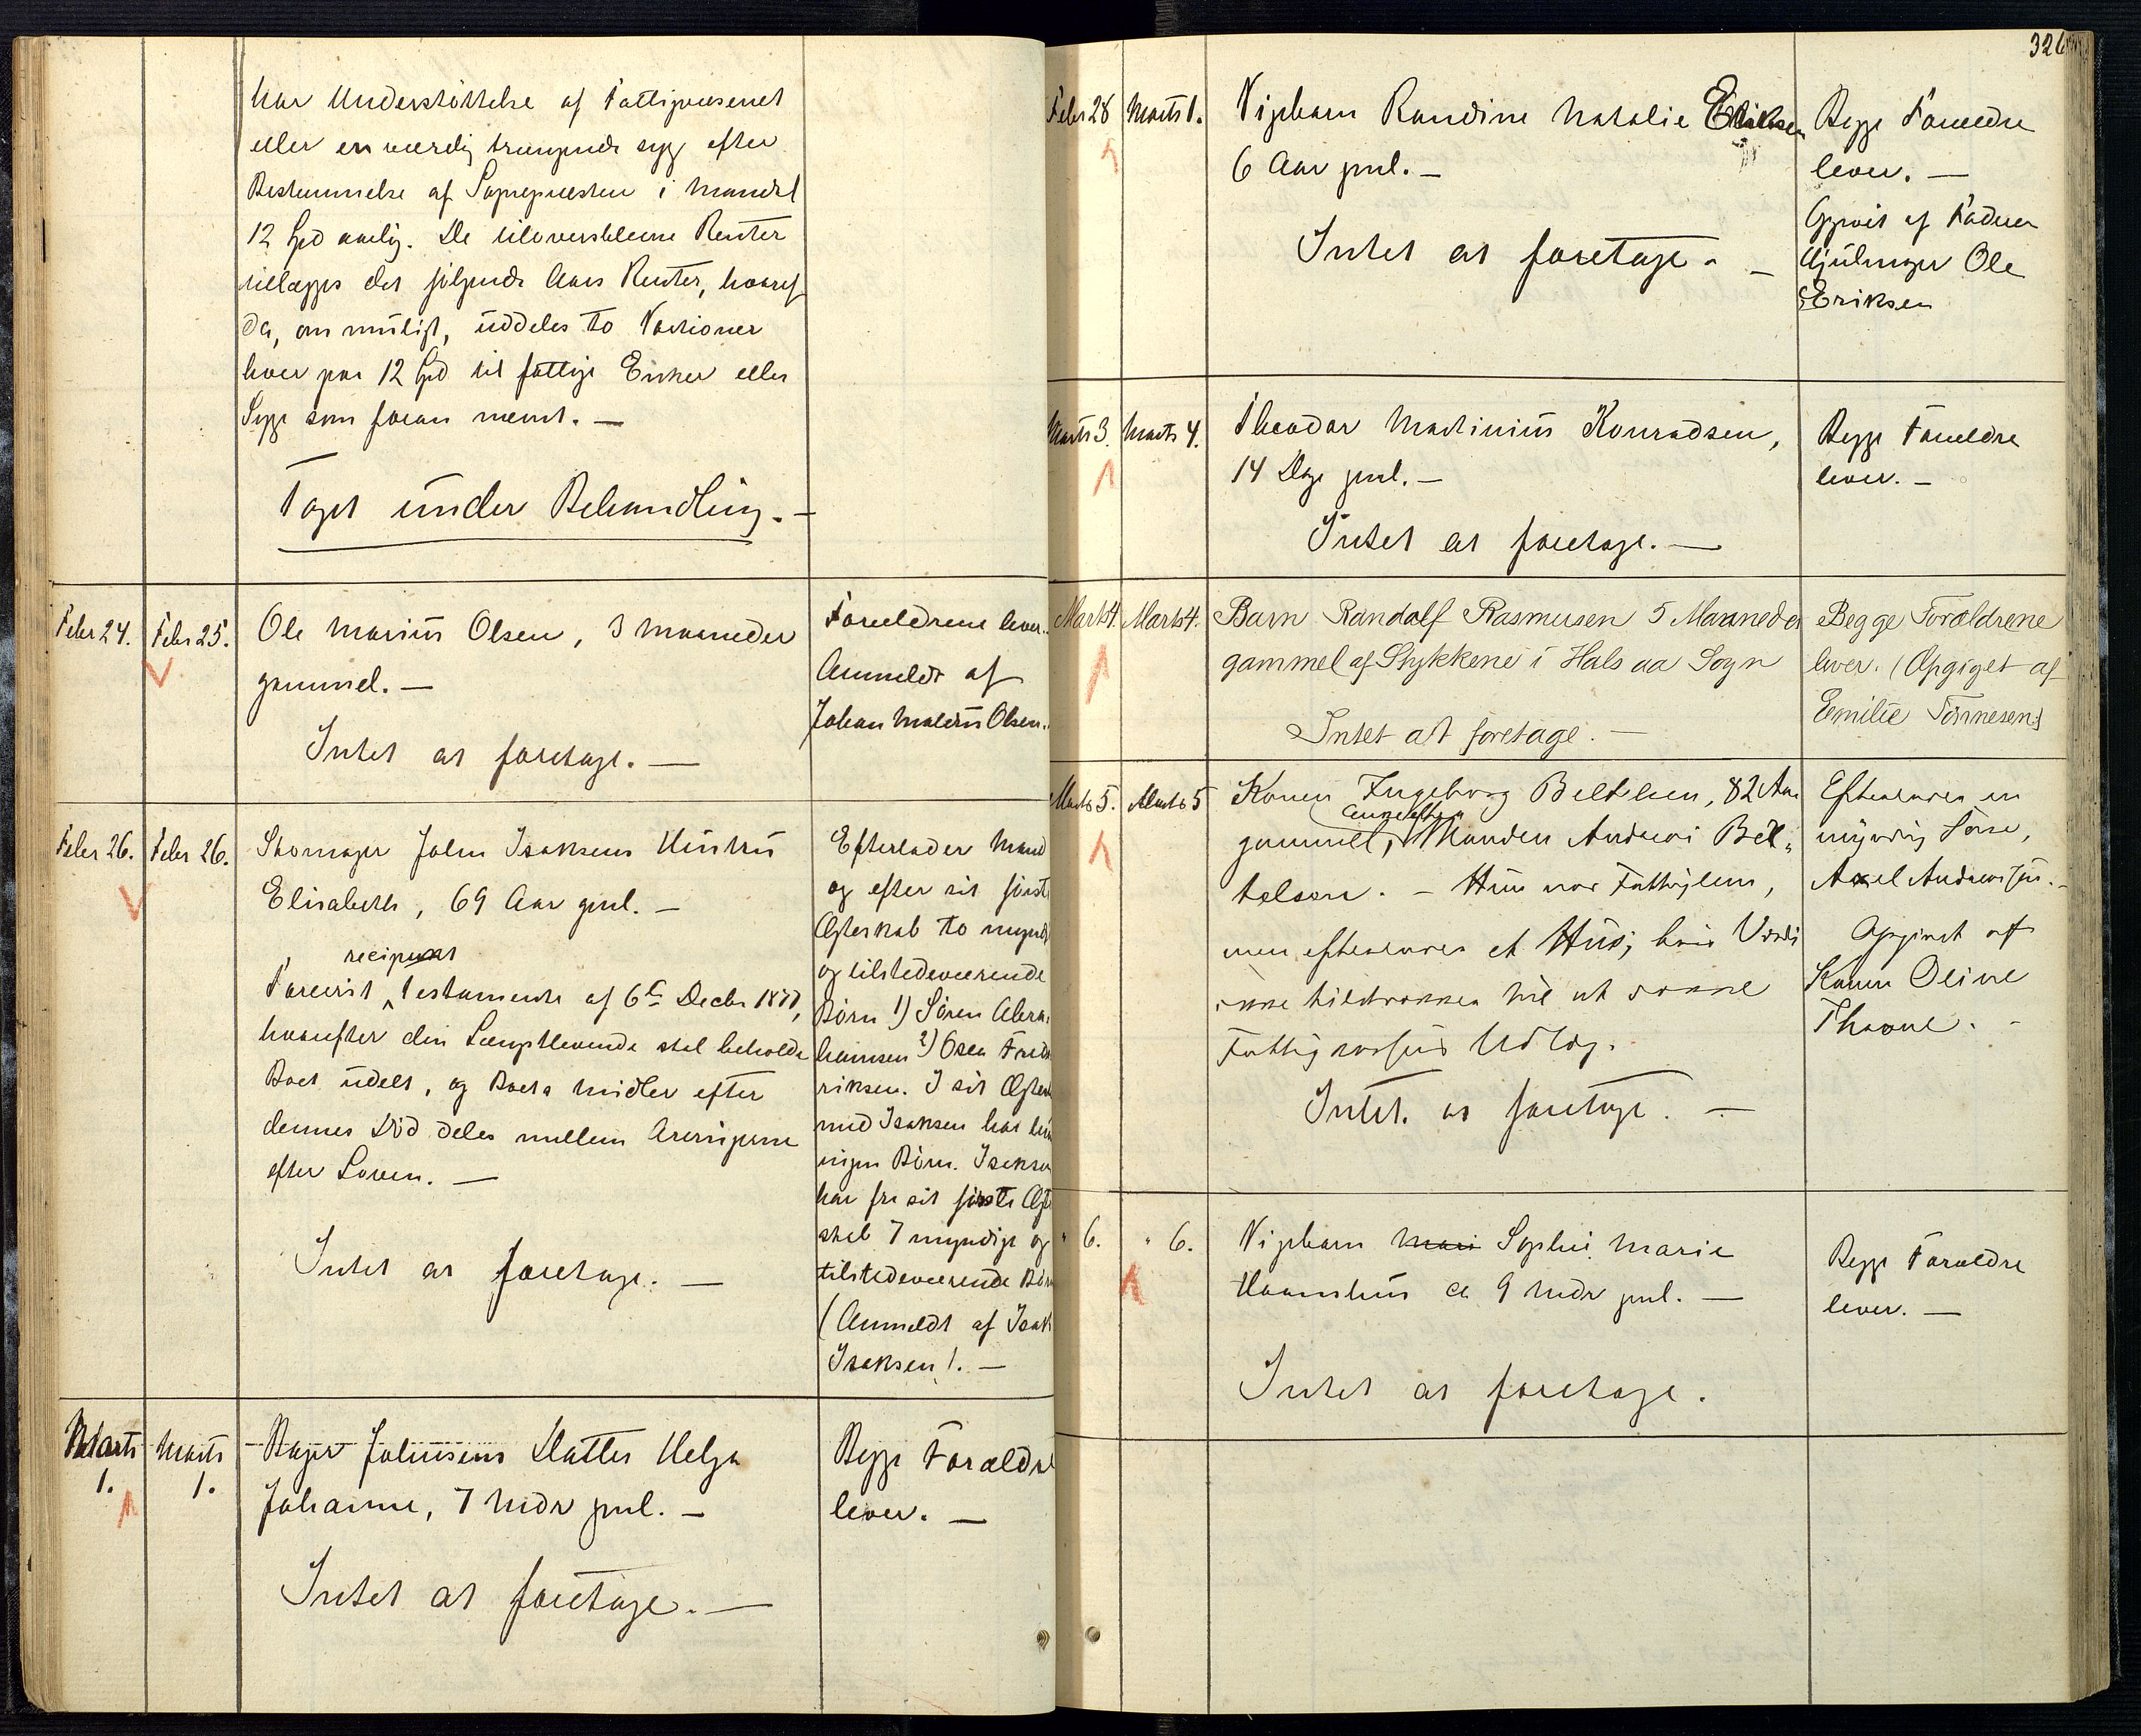 har Understøttelse af Fattigvæsenet
eller en værdig trængende syg efter
Bestemmelse af Sognepræsten i Mandal
12 Spd aarlig. De tiloversblevne Renter
tillægges det følgende Aars Renter, hvoraf
da, om muligt, uddeles to Portioner
hver paa 12 Spd til fattige Enker eller
Syge som foran nævnt. —
Taget under Behandling. —
Febr 24. Febr 25. Ole Marius Olsen, 3 Maaneder
gammel. —
Intet at foretage. —
Forældrene lever.
Anmeldt af
Johan Olsen.
Febr 26. Febr 26. Skomager John Isaksens Hustru
Elisabeth, 69 Aar gml. —
recipr
Forevist Testamente af 6te Decbr 1877,
hvorefter den Længstlevende skal beholde
Boet udelt, og Boets Midler efter
dennes Død deles mellem Arvingerne
efter Loven. —
Intet at foretage. —
Efterlader Mand
og efter sit første
Ægteskab to myndige
og tilstedeværende
Børn 1) Søren Abra-
hamsen 2) Osea Fred-
riksen. I sit Ægtesk
med Isaksen har hun
ingen Børn. Isaksen
har fra sit første Ægte
skab 7 myndige og
tilstedeværende Børn
(Anmeldt af Isak
Isaksen). —
Marts 1. Marts 1. Bager Juliusens Datter Helga
Johanne, 7 Mdr gml. —
Intet at foretage. —
Begge Forældre
lever. —
326
Febr 28 Marts 1. Pigebarn Randine Natalie Eriksen
6 Aar gml. —
Intet at foretage. —
Begge Forældre
lever. —
Opgivet af Faderen
Hjulmager Ole
Eriksen
Marts 3. Marts 4. Theodor Martinius Konradsen,
14 Dage gml. —
Intet at foretage. —
Begge Forældre
lever. —
Marts 4. Marts 4. Barn Randolf Rasmusen 5 Maaneder
gammel af Stykkene i Halsaa Sogn
Intet at foretage. —
Begge Forældrene
lever. (Opgiget af
Emilie Tønnesen)
Marts 5. Marts 5 Konen Ingeborg Beltelsen, 82 Aar
Enke efter
gammel, Manden Andreas Bel-
telsen. — Hun var Fattiglem,
men efterlader et Hus, hvis Værdi
ikke tilstrækker til at dække
Fattigkassens Udlæg.
Intet at foretage. —
Efterlader en
myndig Søn,
Axel Andreassen. —
Opgivet af
Konen Oline
Thorne. —
" 6. " 6. Pigebarn Mari Sophie Marie
Haanshus ca 9 Mdr gml. —
Intet at foretage.
Begge Forældre
lever. —